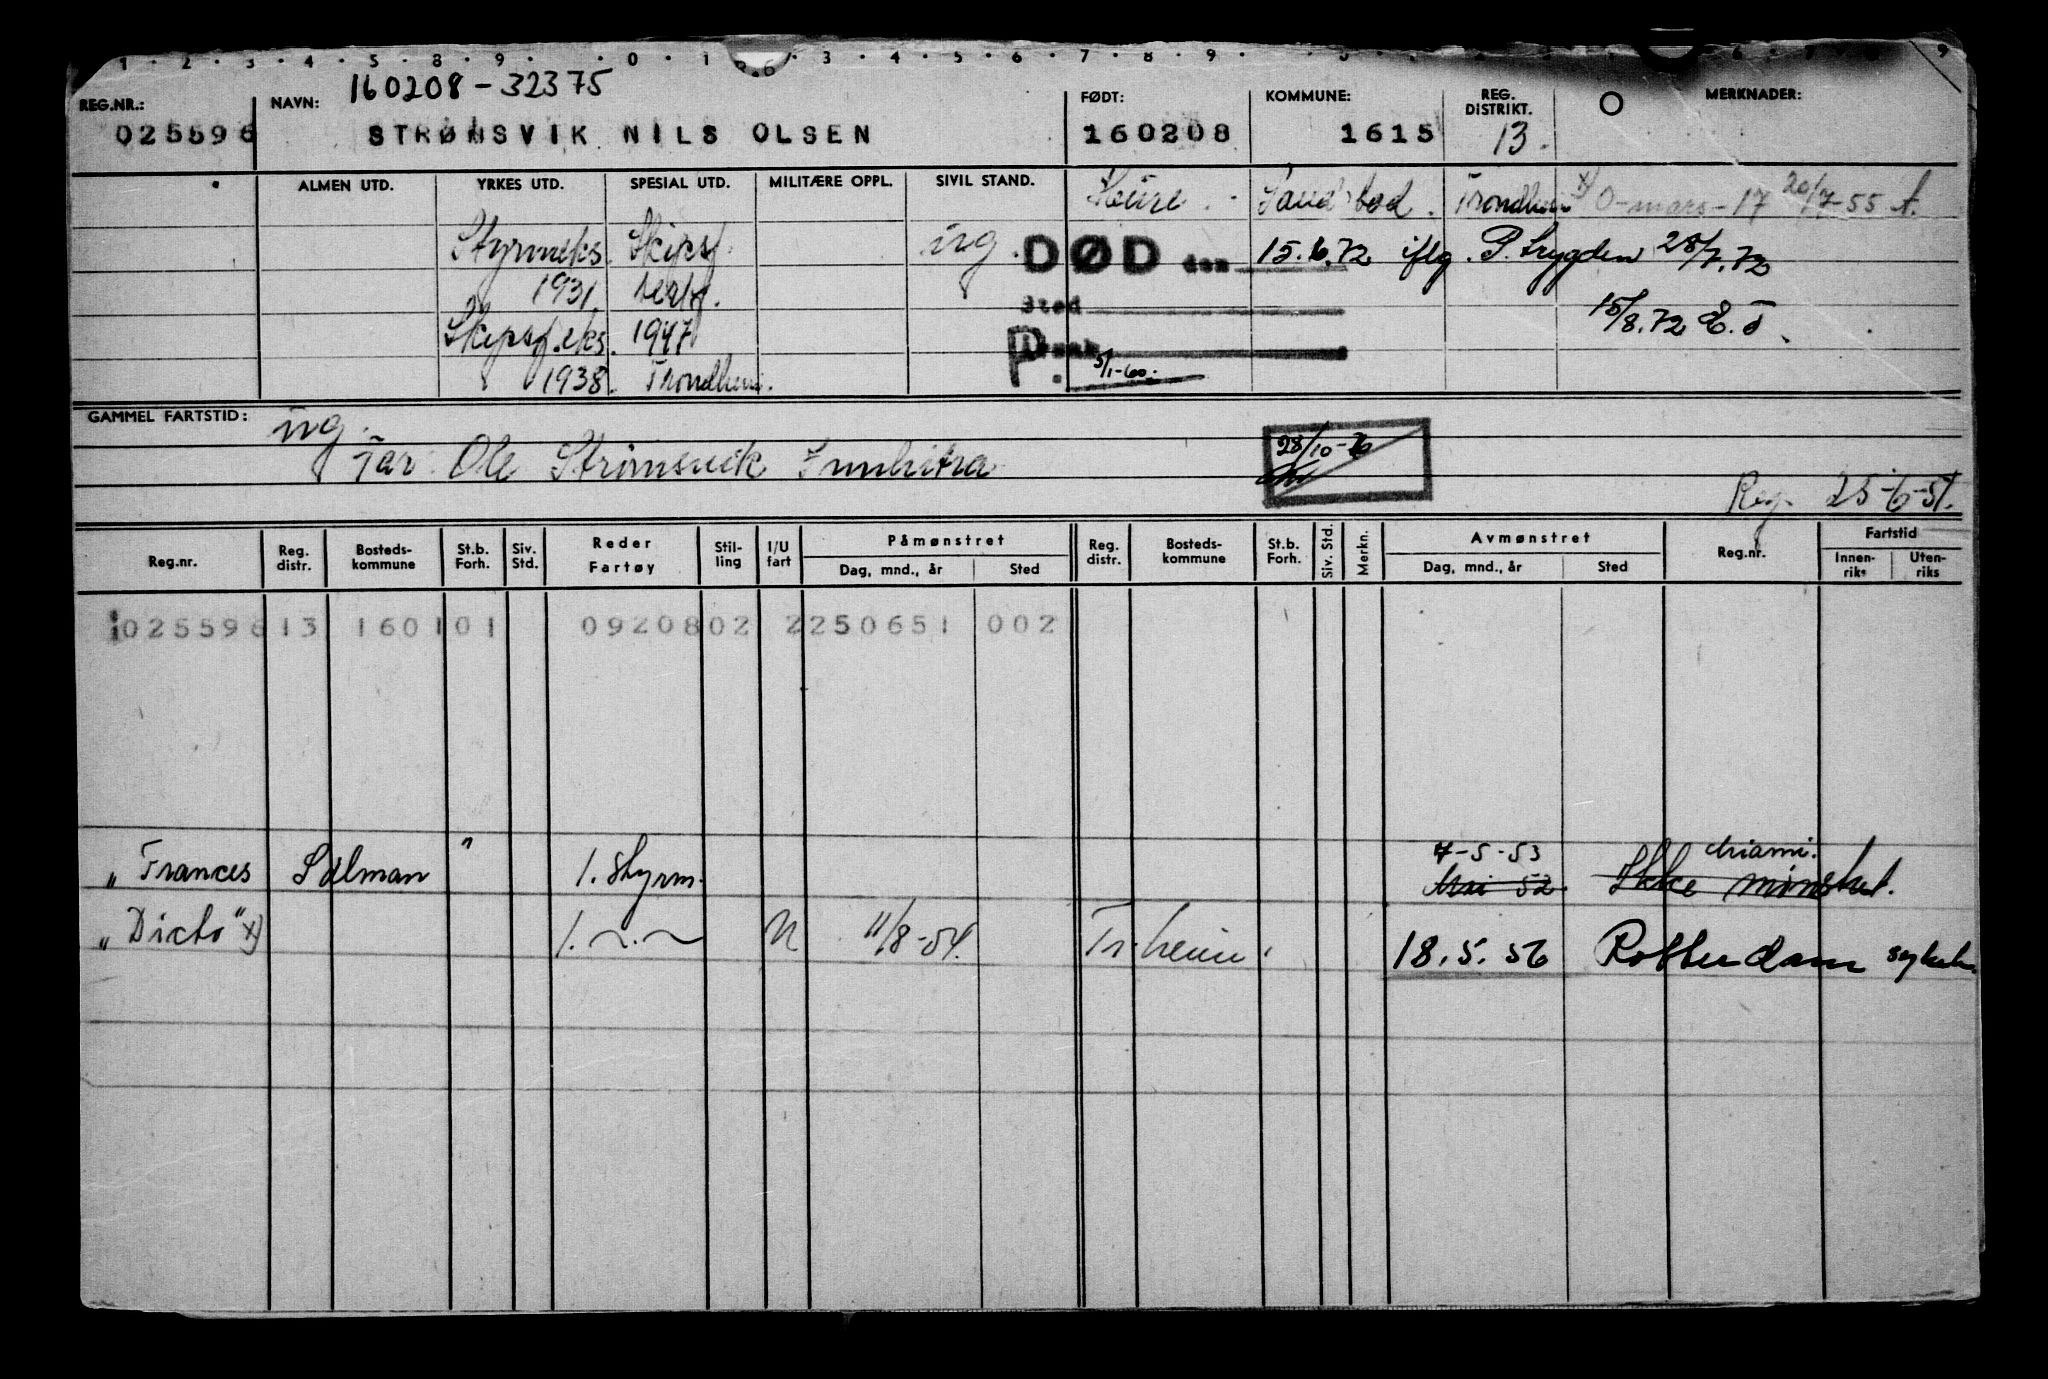 160208-32375
REG.NR.: NAVN: FØDT: KOMMUNE: REG. DISTRIKT. MERKNADER:
025596 STRØMSVIK NILS OLSEN 160208 1615 13.
ALMEN UTD. YRKES UTD. SPESIAL UTD. MILITÆRE OPPL. SIVIL STAND. Sandstad. Trondheim x) O-mars-17 20/7-55 A.
Styrm.eks. Skipsf. ug. DØD den 15.6.72 iflg. P.trygden 28/7.72
1931. sted 15/8.72 E.J.
Skipsf.eks. 1947
1938. Trondheim. P. 5/1-60.
GAMMEL FARTSTID: ug.
Far Ole Strømsvik Innhitra 28/10-70
Reg. 25-6-51.
Reg.nr. Reg. distr. Bosteds-kommune St.b. Forh. Siv. Std. Reder Fartøy Stil-ling I/U fart Påmønstret Dag, mnd., år Sted Reg. distr. Bosteds-kommune St.b. Forh. Siv. Std. Merkn. Avmønstret Dag, mnd., år Sted Reg.nr. Fartstid Innen-riks Uten-riks
025596 13 160101 0920802 2250651 002
7-5-53 Miami.
"Frances Salman" 1. styrm. Mai 52. Ikke mønstret.
"Dicto" x) 1. ~.~ U 11/8-54. Tr.heim. 18.5.56 Rotterdam sykeh.